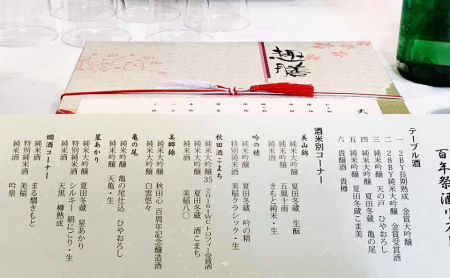 百年祭酒
テーブル酒
一 2BY長期熟成 金賞大吟醸
二 28BY 純米大吟醸 金賞受賞酒
三 純米大吟醸 天の戸 ひやおろし
四 純米大吟醸 夏田冬蔵 亀の尾
五 純米大吟醸 夏田冬蔵こま美
六 貴醸酒 貴樽
酒米別コーナー
美山錦
純米大吟醸 夏田冬蔵 生酛
純米吟醸 五風十雨
純米酒 きもと純米・生
吟の精
純米大吟醸 夏田冬蔵 吟の精
特別純米酒 美稲クラシック・生
秋田酒こまち
純米大吟醸35 2018IWCトロフィー受賞酒
純米大吟醸 夏田冬蔵 酒こまち
特別純米酒 美稲八〇
美郷錦
純米大吟醸 秋田心 百周年記念醸造酒
純米大吟醸 白雲悠々
亀の尾
純米吟醸 亀の尾仕込 ひやおろし
純米吟醸 天亀・生
星あかり
純米大吟醸 夏田冬蔵 星あかり
特別純米酒 シルキー絹にごり・生
純米酒 天黒 樽熟成
燗酒コーナー
純米酒 まる燗きもと
特別純米酒 美稲
純米酒 吟泉